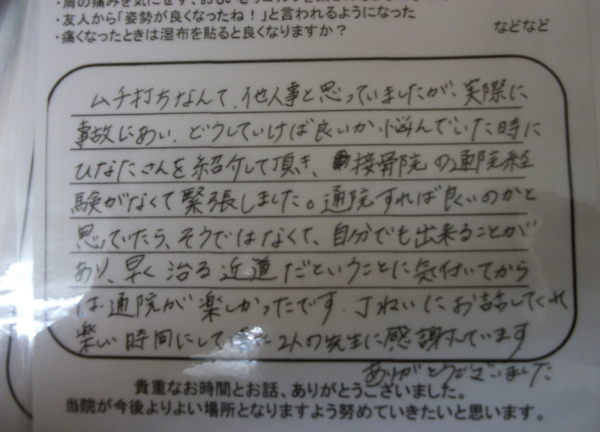 ・友人から「姿勢が良くなったね！」と言われるようになった
・痛くなったときは湿布を貼ると良くなりますか？
などなど
ムチ打ちなんて、他人事と思っていましたが、実際に
事故にあい、どうしていけば良いか、悩んでいた時に
ひなたさんを紹介して頂き、接骨院の通院経
験がなくて緊張しました。通院すれば良いのかと
思ていたら、そうではなくて、自分でも出来ることが
あり、早く治る近道だということに気付いてから
は通院が楽しかったです。丁ねいにお話してくれ
楽しい時間にして 2人の先生に感謝しています
ありがとうございました
貴重なお時間とお話、ありがとうございました。
当院が今後よりよい場所となりますよう努めていきたいと思います。